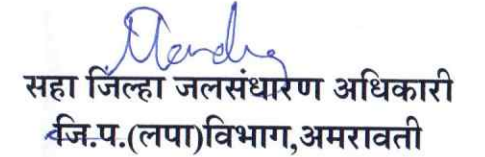 सहा जिल्हा जलसंधारण अधिकारी
जि.प.(लपा)विभाग,अमरावती